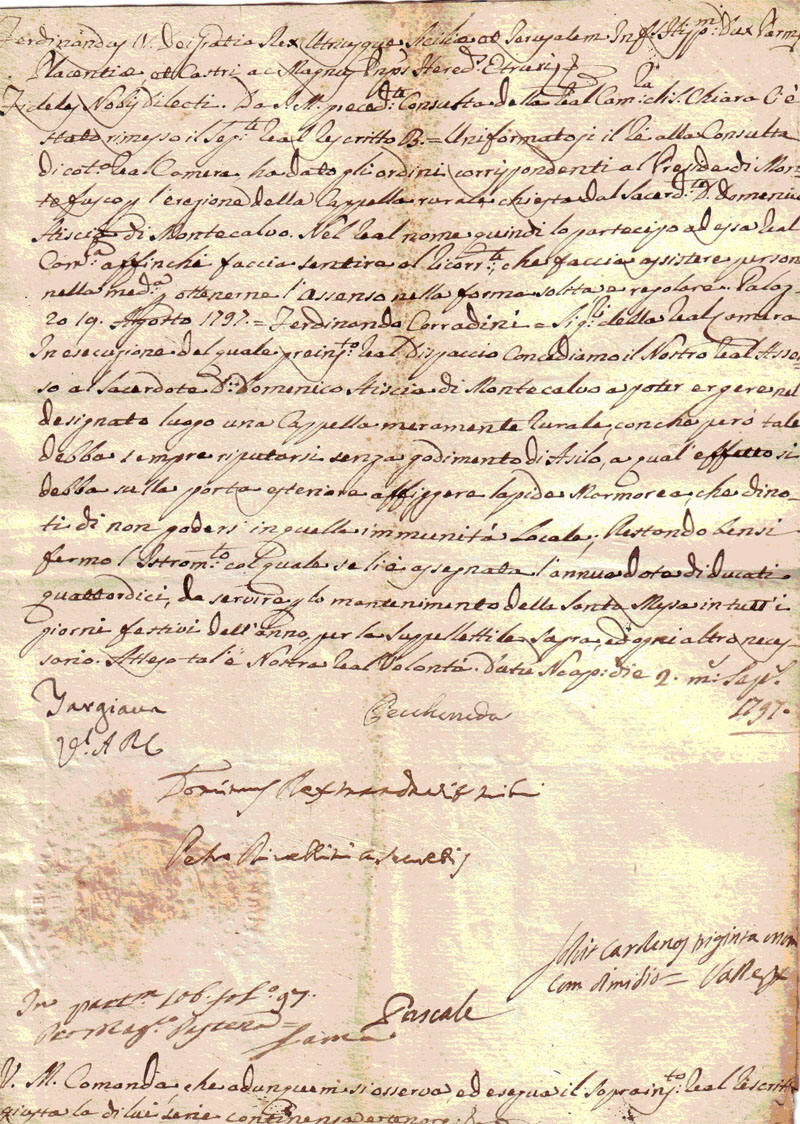 Ferdinandus IV. Dei Gratia Rex Utriusque Siciliæ et Jerusalem Inf.s Hisp.m Dux Parmę
Placentiæ et Castri ac Magnus Pnps Hered.s Etrurię
Fideles Nobis Dilecti. Da S. M. preced.te Consulta della Real Cam.ra di S. Chiara C'è
stato rimesso il seg.te Real Rescritto B. = Uniformatosi il Re alla Consulta
di cot.a Real Camera, ha dato gli ordini corrispondenti al Preside di Mon-
tefusco p l'erezione della Cappella rurale chiesta dal Sacerd.te D. Domenico
Stiscia di Montecalvo. Nel Real nome quindi lo partecipo ad essa Real
Cam.a affinchè faccia sentire al Ricorr.te, che faccia assistere person
nella med.a p ottenerne l'assenso nella forma solita e regolare. Palaz-
zo 19. Agosto 1797. = Ferdinando Corradini = Sig.ri della Real Camera
In esecuzione del quale preins.to Real Dispaccio Concediamo il Nostro Real Assen-
so al Sacerdote D. Domenico Stiscia di Montecalvo a poter ergere nel
designato luogo una Cappella meramente rurale, con che però tale
debba sempre riputarsi senza godimento di Asilo, a qual effetto si
debba sulla porta esteriore affiggere lapide Marmorea, che dino-
ti di non godersi in quella immunità Locale; Restando bensì
fermo l'Istrom.to col quale se li è assegnata l'annua dote di ducati
quattordici, da servire p lo mantenimento della Santa Messa in tutt'i
giorni festivi dell'anno, per la Suppellettile Sagra, ed ogni altro neces-
sario. Atteso tal'è Nostra Real Volontà. Datu Neap: die 2. m: Sep.
Targiana Peccheneda 1797.
Dominus Rex mandavit mihi
Solvit Carlenos viginta
Cum dimidio =
In part.m 106. fol.o 97.
Pascale
V. M. Comanda che adunque si osserva ed esegua il Soprains.to Real Rescritto
giusta la di lui serie continenza e tenore